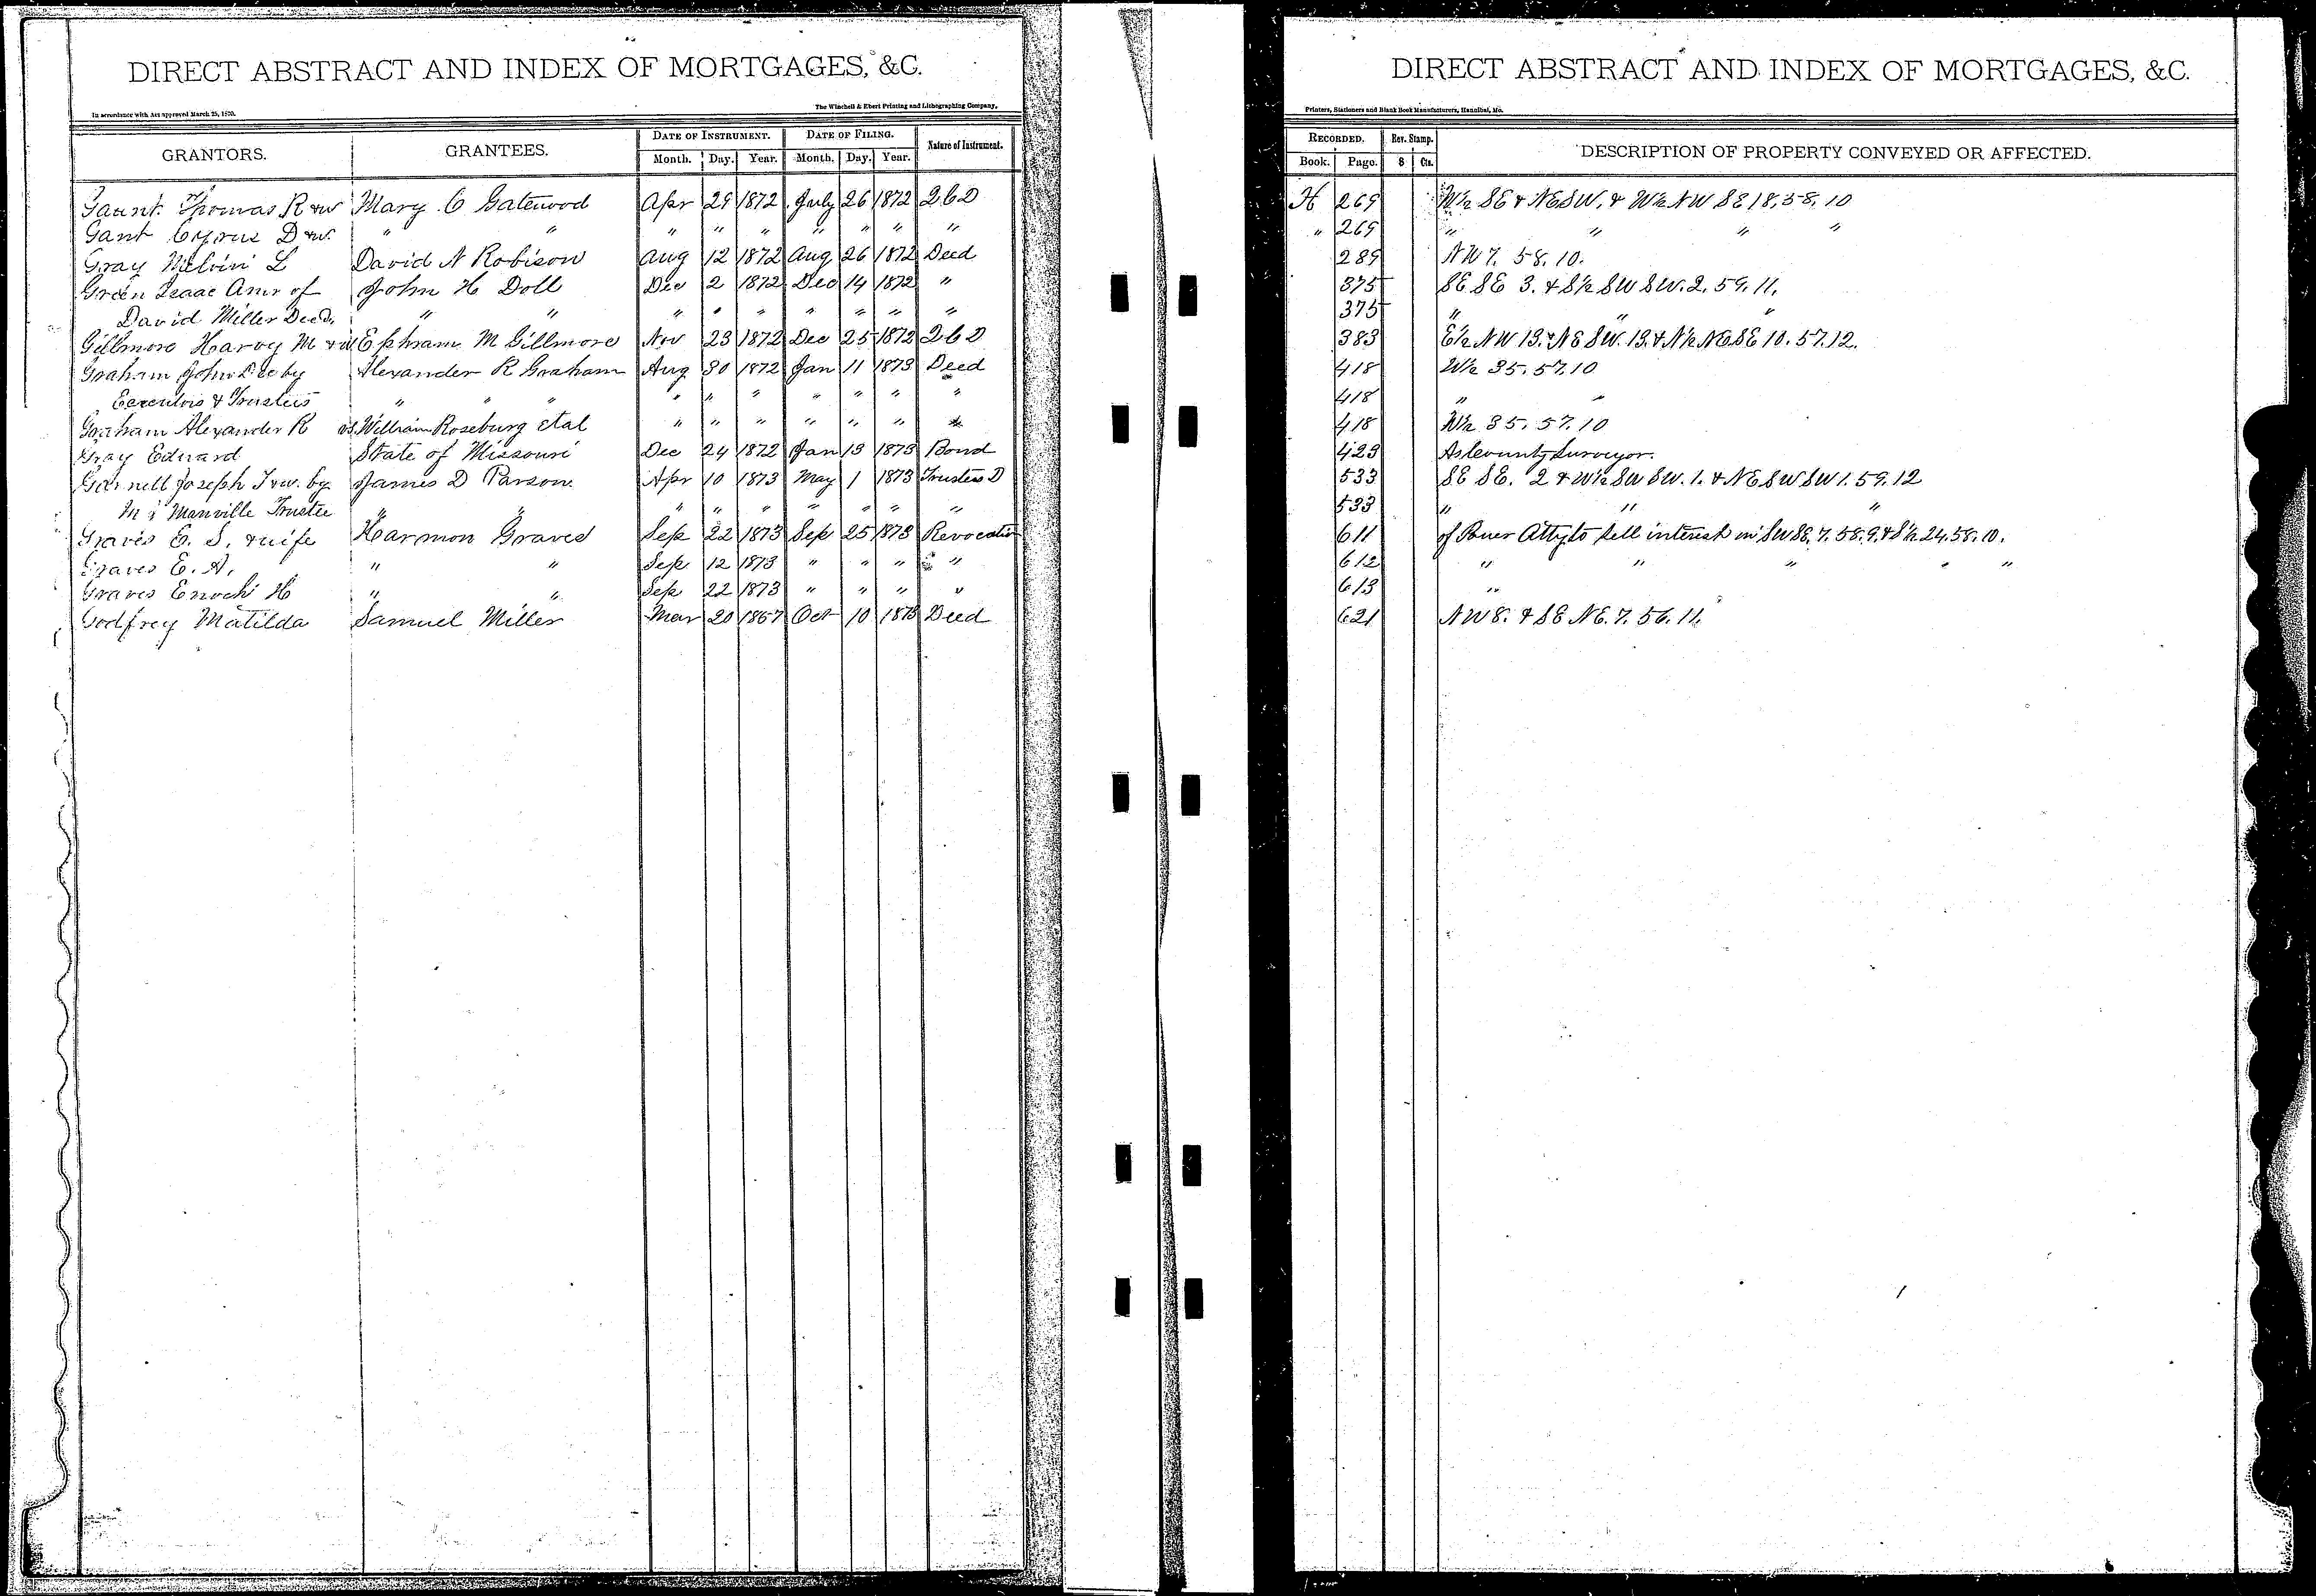 DIRECT ABSTRACT AND INDEX OF MORTGAGES, &C.
In accordance with Act approved March 25, 1870.
The Winchell & Ebert Printing and Lithographing Company,
GRANTORS. GRANTEES. DATE OF INSTRUMENT. DATE OF FILING. Nature of Instrument.
Month. Day. Year. Month. Day. Year.
Gaunt Thomas R & w Mary C Gatewood Apr 29 1872 July 26 1872 2 C D
Gant Cyprus D & w. " " " " " " " " "
Gray Melvin L David N Robison Aug 12 1872 Aug 26 1872 Deed
Green Isaac Amr of John H Doll Dec 2 1872 Dec 14 1872 "
David Miller Decd. " " " " " " " " "
Gillmore Harvy M & w Ephram M Gillmore Nov 23 1872 Dec 25 1872 2 C D
Graham John Dec by Alexander R Graham Aug 30 1872 Jan 11 1873 Deed
Executors & Trustees " " " " " " " " " "
Graham Alexander R vs William Roseburg etal " " " " " " "
Gray Edward State of Missouri Dec 24 1872 Jan 13 1873 Bond
Garnell Joseph T & w. by James D Parson Apr 10 1873 May 1 1873 Trustees D
Manville Trustee " " " " " " " " "
Graves E. S. & wife Harmon Graves Sep 22 1873 Sep 25 1873 Revocation
Graves E. A. " " Sep 12 1873 " " " "
Graves Enoch H " " Sep 22 1873 " " " "
Godfrey Matilda Samuel Miller Mar 20 1867 Oct 10 1873 Deed
DIRECT ABSTRACT AND INDEX OF MORTGAGES, &C.
Printers, Stationers and Blank Book Manufacturers, Hannibal, Mo.
RECORDED. Rev. Stamp. DESCRIPTION OF PROPERTY CONVEYED OR AFFECTED.
Book. Page. $ Cts.
H 269 W½ SE & NE SW, & W½ NW SE 18, 58, 10
" 269 " " " "
289 NW 7. 58. 10.
375 SE SE 3. & S½ SW SW. 2. 59. 11.
375 " "
383 E½ NW 13. & NE SW. 13. & N½ NE SE 10. 57. 12.
418 W½ 35. 57. 10
418 " "
418 W½ 35. 57. 10
423 As County Surveyor.
533 SE SE. 2 & W½ SW SW. 1. & NE SW SW 1. 59. 12
533 " " "
611 of Power Atty to sell interest in SW SE. 7. 58. 9. & S½ 24. 58. 10.
612 " " " " "
613 "
621 NW 8. & SE NE. 7. 56. 11.